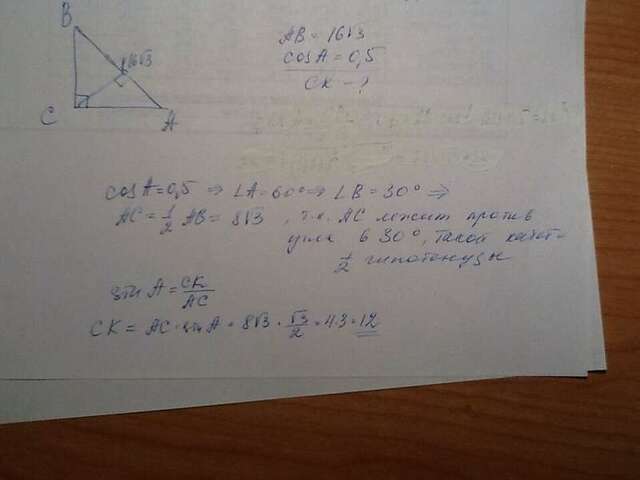 B
16√3
C
A
AB = 16√3
cos A = 0,5
CK - ?
cos A = 0,5 ⇒ ∠A = 60° ⇒ ∠B = 30° ⇒
AC = 1/2 AB = 8√3 , т.к. AC лежит против
угла в 30°, такой катет =
1/2 гипотенузы
sin A = CK/AC
CK = AC · sin A = 8√3 · √3/2 = 4·3 = 12